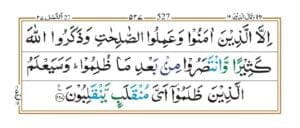 527 ٥٢٧
اِلَّا الَّذِیْنَ اٰمَنُوْا وَعَمِلُوا الصّٰلِحٰتِ وَذَكَرُوا اللّٰهَ
كَثِیْرًا وَّانْتَصَرُوْا مِنْۢ بَعْدِ مَا ظُلِمُوْا ؕ وَسَیَعْلَمُ
الَّذِیْنَ ظَلَمُوْۤا اَیَّ مُنْقَلَبٍ یَّنْقَلِبُوْنَ